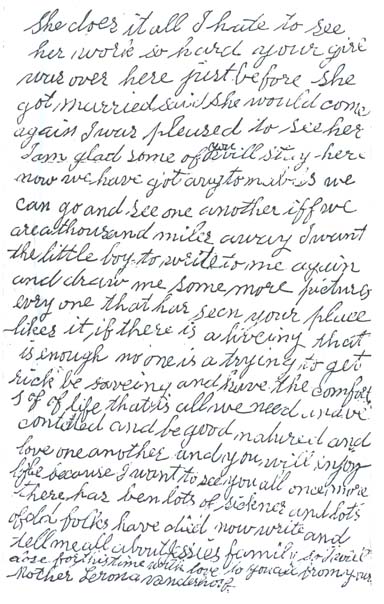 She does it all I hate to see
her work so hard your girl
was over here just before she
got married said she would come
again I was pleased to see her
I am glad some of you will stay here
now we have got autos we
can go and see one another iff we
are a thousand miles away I want
the little boy to write to me again
and draw me some more pictures
evry one that has seen your place
likes it, if there is a liveing that
is enough no one is a trying to get
rich be saveing and have the comfort
s of life that is all we need
and be good natured and
love one another and you will injoy
life because I want to see you all once more
there has ben lots of sickness and lots
of old folks have died now write and
tell me all about family so I will
close for this time with love to you all from your
Mother Lerona Vanderhoof